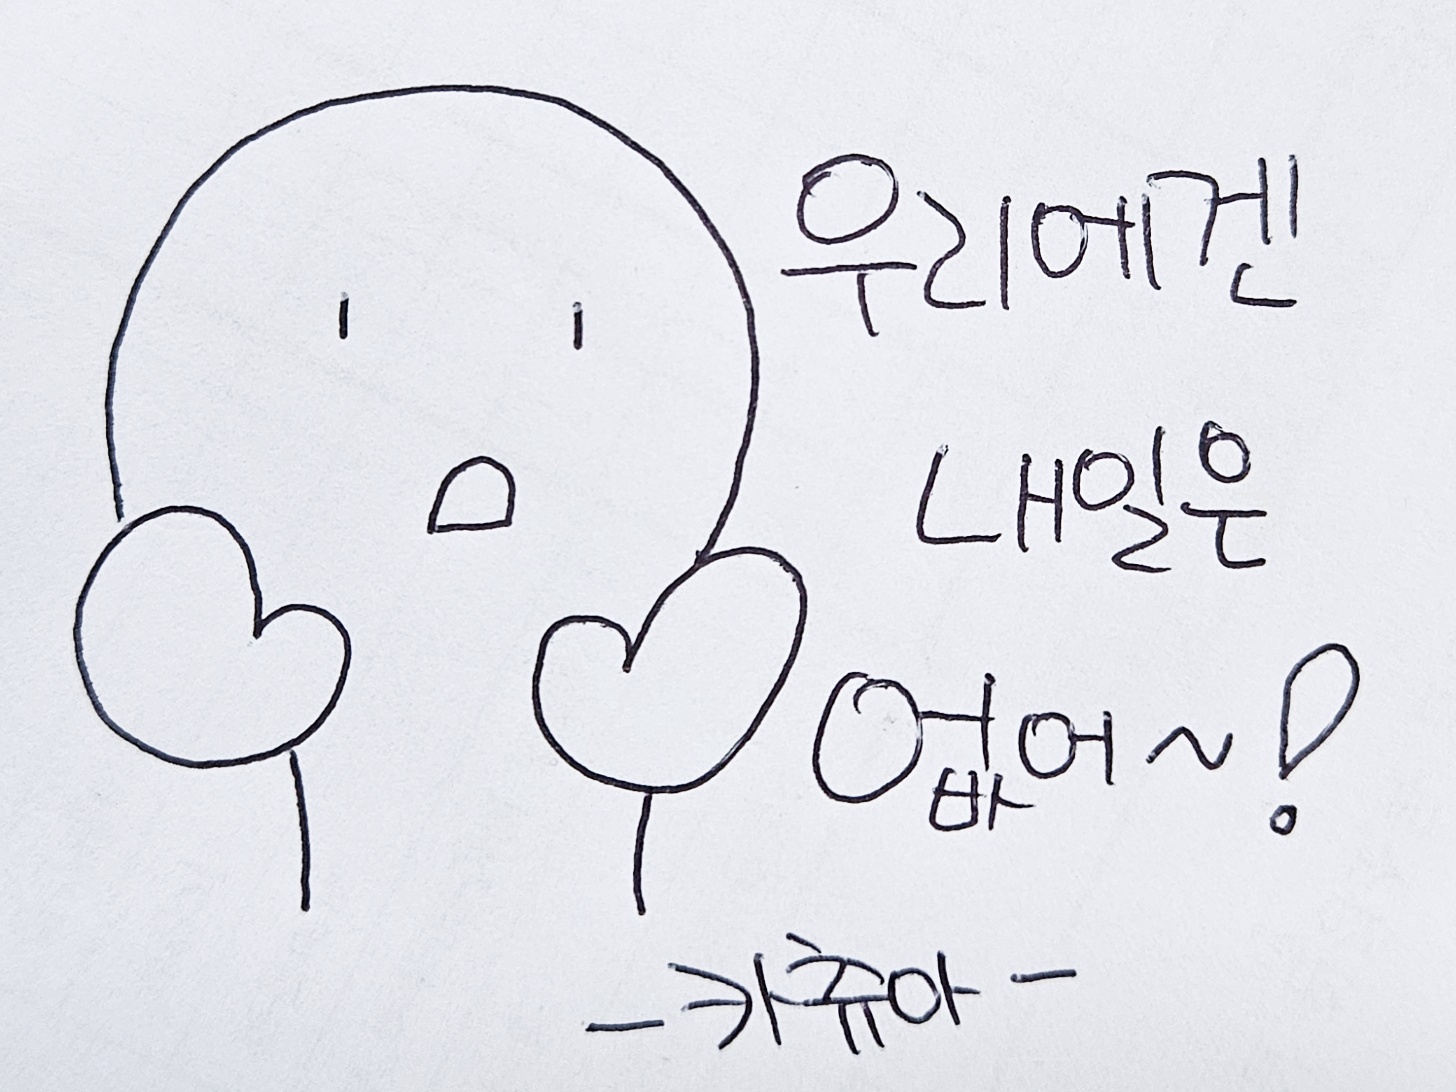 우리에겐
내일은
없어~!
- 카츄아 -